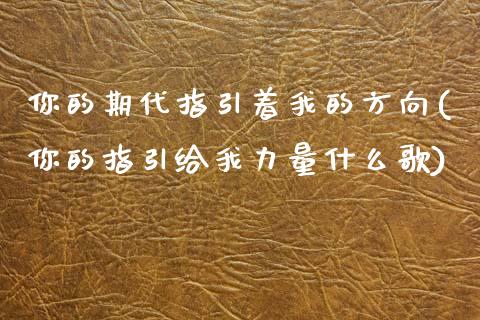 你的期代指引着我的方向(
你的指引给我力量什么歌)